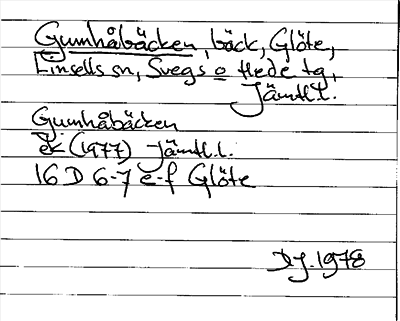 Gumhåbäcken, bäck, Glöte,
Linsells sn, Svegs o Hede tg,
Jämtl.l.
Gumhåbäcken
ek (1977) Jämtl.l.
16 D 6-7 e-f Glöte
DJ. 1978